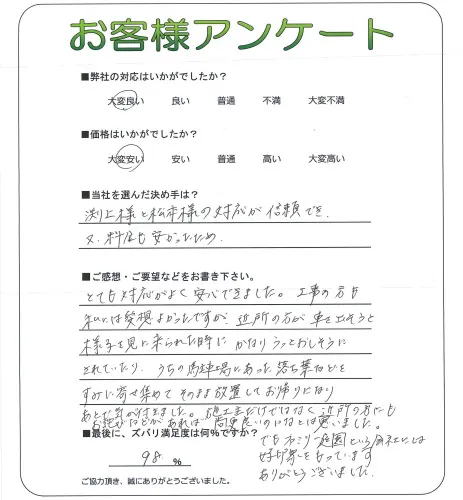 お客様アンケート
■弊社の対応はいかがでしたか？
大変良い 良い 普通 不満 大変不満
■価格はいかがでしたか？
大変安い 安い 普通 高い 大変高い
■当社を選んだ決め手は？
渕上様と松本様の対応が信頼でき、
又、料金も安かったため。
■ご感想・ご要望などをお書き下さい。
とても対応がよく安心できました。工事の方も
私には愛想よかったですが、近所の方が車を出そうと
様子を見に来られた時にかなりうっとおしそうに
されていたり、うちの駐車場にあった落ち葉などを
すみに寄せ集めてそのまま放置してお帰りになり
あとで気が付きました。施工主だけではなく近所の方にも
お詫びなどがあれば、尚更良いのになとは思いました。
■最後に、ズバリ満足度は何%ですか？
でもファミリー庭園という会社には
好印象をもっています
98 %
ありがとうございました。
ご協力頂き、誠にありがとうございました。